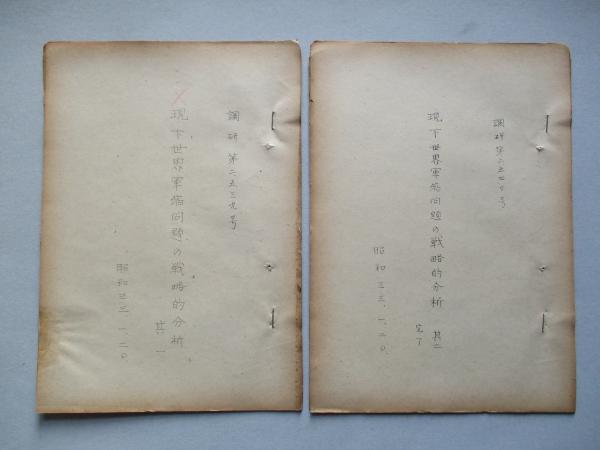 調研第二五三九号
現下世界軍縮問題の戦略的分析
其一
昭和三三、一、二〇、
調研第二五四〇号
現下世界軍縮問題の戦略的分析 其二
完了
昭和三三、一、二〇、